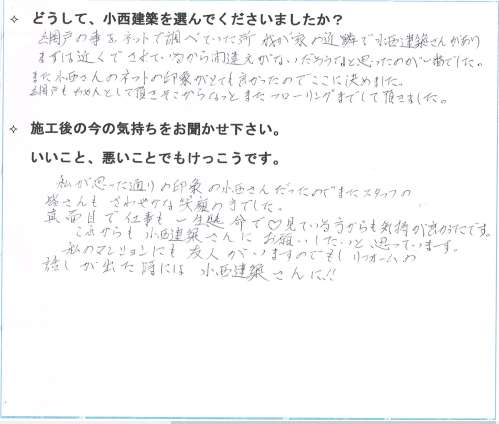 ✧ どうして、小西建築を選んでくださいましたか？
網戸の事をネットで調べていた所 我が家の近隣で小西建築さんがあり
まずは近くでされているから間違えがないだろうなと思ったのが一番でした。
また小西さんのネットの印象がとても良かったのでここに決めました。
網戸もちゃんとして頂きそこからなっとまたフローリングまでして頂きました。
✧ 施工後の今の気持ちをお聞かせ下さい。
いいこと、悪いことでもけっこうです。
私が思った通りの印象の小西さんだったのでまたスタッフの
皆さんも さわやかな笑顔の方でした。
真面目で仕事も一生懸命で♡見ている方からも気持が良かったです。
これからも 小西建築さんに お願いしたいと思っています。
私のマンションにも 友人がいますのでもしリフォームの
話しが出た時には 小西建築さんに!!